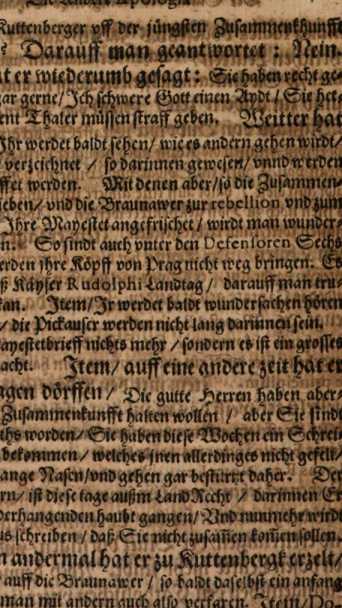 Kuttenberger vff der jüngsten Zusammenkhunfft
Darauff man geantwortet: Nein.
at er wiederumb gesagt: Sie haben recht ge-
gar gerne/ Ich schwere Gott einen Aydt/ Sie het-
ent Thaler müssen straff geben. Weitter hat
Ihr werdet baldt sehen/ wie es andern gehen wirdt/
verzeichnet / so darinnen gewesen/ vnnd werden
ffet werden. Mit denen aber/ so die Zusammen-
ieben/ vnd die Braunawer zur rebellion vnd zum
Ihre Mayestet angefrischet/ wirdt man wunder-
n. So sindt auch vnter den Defensoren Sechs
erden ihre Köpff von Prag nicht weg bringen. Es
ß Käyser Rudolphi Landtag/ darauff man tru-
kan. Item/ Ir werdet baldt wundersachen hören
/ die Pickauser werden nicht lang darinnen sein.
ayestetbrieff nichts mehr / sondern es ist ein grosses
acht. Item/ auff eine andere zeit hat er
agen dörffen/ Die gutte Herren haben aber-
Zusammenkunfft halten wollen / aber Sie sindt
ths worden/ Sie haben diese Wochen ein Schrei-
bekommen/ welches jnen allerdinges nicht gefelt/
ange Nasen/ vnd gehen gar bestürtzt daher. Der
rn/ ist diese tage außm LandRecht / darinnen Er
derhangenden haubt gangen/ Vnd nunmehr wird
us schreiben / daß Sie nicht zusañen kom̃en sollen.
n andermal hat er zu Kuttenbergk erzelt/
auff die Braunawer / so baldt daselbst ein anfang
man mit andern auch also verfaren. Item/ Do-